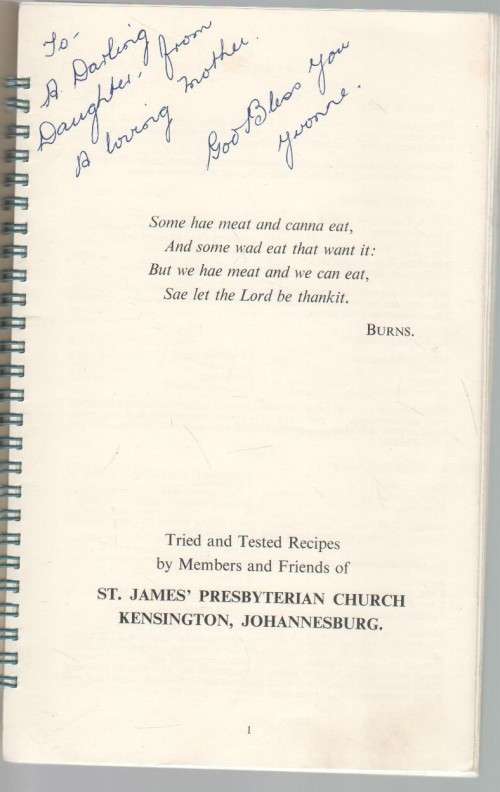 To-
A Darling
Daughter, from
A loving mother.
God Bless you
Yvonne.
Some hae meat and canna eat,
And some wad eat that want it:
But we hae meat and we can eat,
Sae let the Lord be thankit.
BURNS.
Tried and Tested Recipes
by Members and Friends of
ST. JAMES' PRESBYTERIAN CHURCH
KENSINGTON, JOHANNESBURG.
1